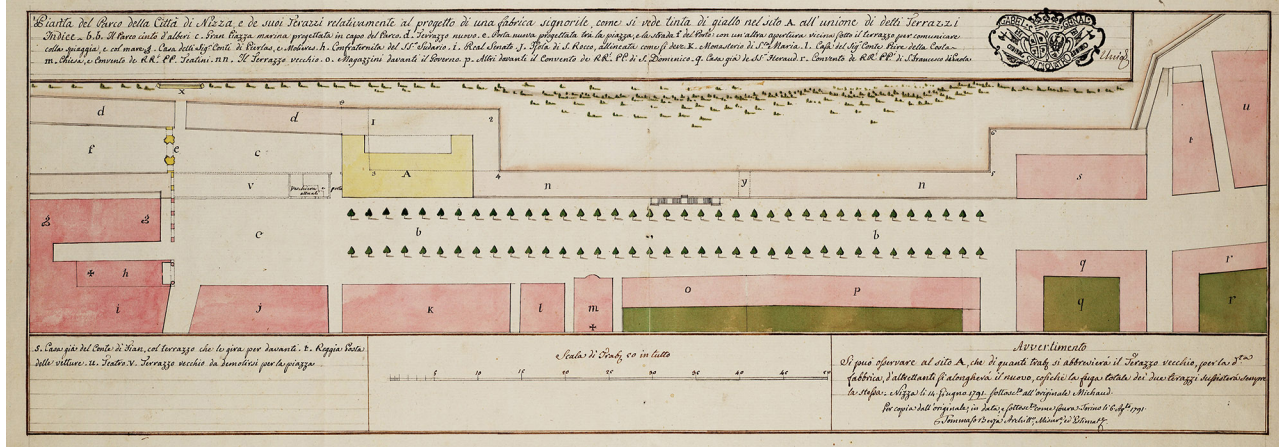 Pianta del Parco della Città di Nizza, e de suoi Terazzi relativamente al progetto di una fabrica signorile, come si vede tinta di giallo nel sito A all'unione di detti Terrazzi
Indice _ b.b. Il Parco cinto d'alberi c. Gran Piazza marina progettata in capo del Parco. d. Terrazzo nuovo. e. Porta nuova progettata tra la piazza, e la strada f. del Porto con un'altra apertura vicina sotto il terrazzo per comunicare
colla spiaggia, e col mare. g. Casa delli Sig.ri Conti di Pierlas, e Moiures. h. Confraternita del SS. Sudario. i. Real Senato. j. Isola di S. Rocco, allineata come si deve. k. Monasterio di S.ta Maria. l. Casa del Sig. Conte
m. Chiesa, e Convento de RR. PP. Teatini. n n. Il Terrazzo vecchio. o. Magazzini davanti il Governo. p. Altri davanti il Convento de RR. PP. di S. Domenico. q. Casa già de SS.ri Heraud. r. Convento de RR. PP. di S. Francesco di Paola
x
d
d
1
2
6
t
u
f
e
c
3
A
4
v
n
y
n
5
s
g
g
c
b
b
h
i
j
k
l
m
o
p
q
q
r
r
s. Casa già del Conte di Tian, col terrazzo che le gira per davanti. t. Reggia Posta
delle vetture. u. Teatro. v. Terrazzo vecchio da demolirsi per la piazza
Scala di Trab. 50 in tutto
5 10 15 20 25 30 35 40 45 50
Avvertimento
Si può osservare al sito A, che di quanti trab. si abbrevierà il Terazzo vecchio, per la d.ta
fabbrica, d'altrettanti si alongherà il nuovo, cosiche la fuga totale dei due terazzi sussisterà sempre
la stessa. Nizza li 14 Giugno 1791. sottos.to all'originale Michaud
Per copia dall'originale, in data, e sottos.ne come sovra Torino li 6 Ag.to 1791.